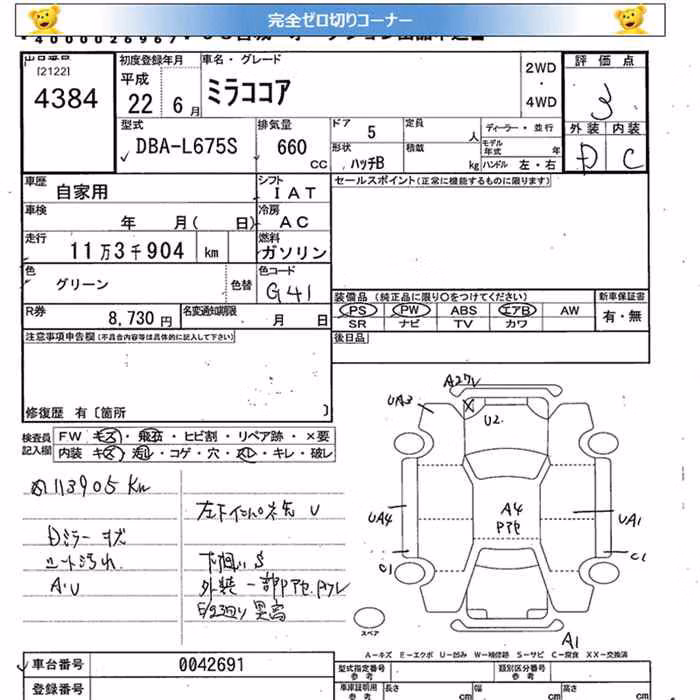 完全ゼロ切りコーナー
出品番号
[2122]
4384
初度登録年月
平成
22 6月
車名・グレード
ミラココア
2WD
・
4WD
評価点
3
外装 内装
D C
型式
DBA-L675S
排気量
660 CC
ドア 5
形状 ハッチB
定員 人
積載 kg
ディーラー・並行
モデル年式 年
ハンドル 左・右
車歴
自家用
シフト
IAT
車検
年 月( 日)
冷房
AC
走行
11万3千904 km
燃料
ガソリン
色
グリーン
色替
色コード
G41
R券
8,730円
名変通知期限
月 日
セールスポイント(正常に機能するものに限ります)
装備品(純正品に限り○をつけてください)
PS PW ABS エアB AW
SR ナビ TV カワ
新車保証書
有・無
後日品
注意事項申告欄(不具合内容等は具体的に記入して下さい)
修復歴 有〔箇所 〕
検査員
記入欄
FW キズ・飛石・ヒビ割・リペア跡・×要
内装 キズ・汚レ・コゲ・穴・スレ・キレ・破レ
113905 Km
Dミラーキズ
シート汚れ
A・U
U
下廻りS
A2ワレ
UA3
U2
UA4
A4
Pアセ
UA1
C1
C1
A1
スペア
A-キズ E-エクボ U-凹み W-補修跡 S-サビ C-腐食 XX-交換済
車台番号
0042691
登録番号
型式指定番号
参考
類別区分番号
参考
車庫証明用
参考
長さ cm
幅 cm
高さ cm